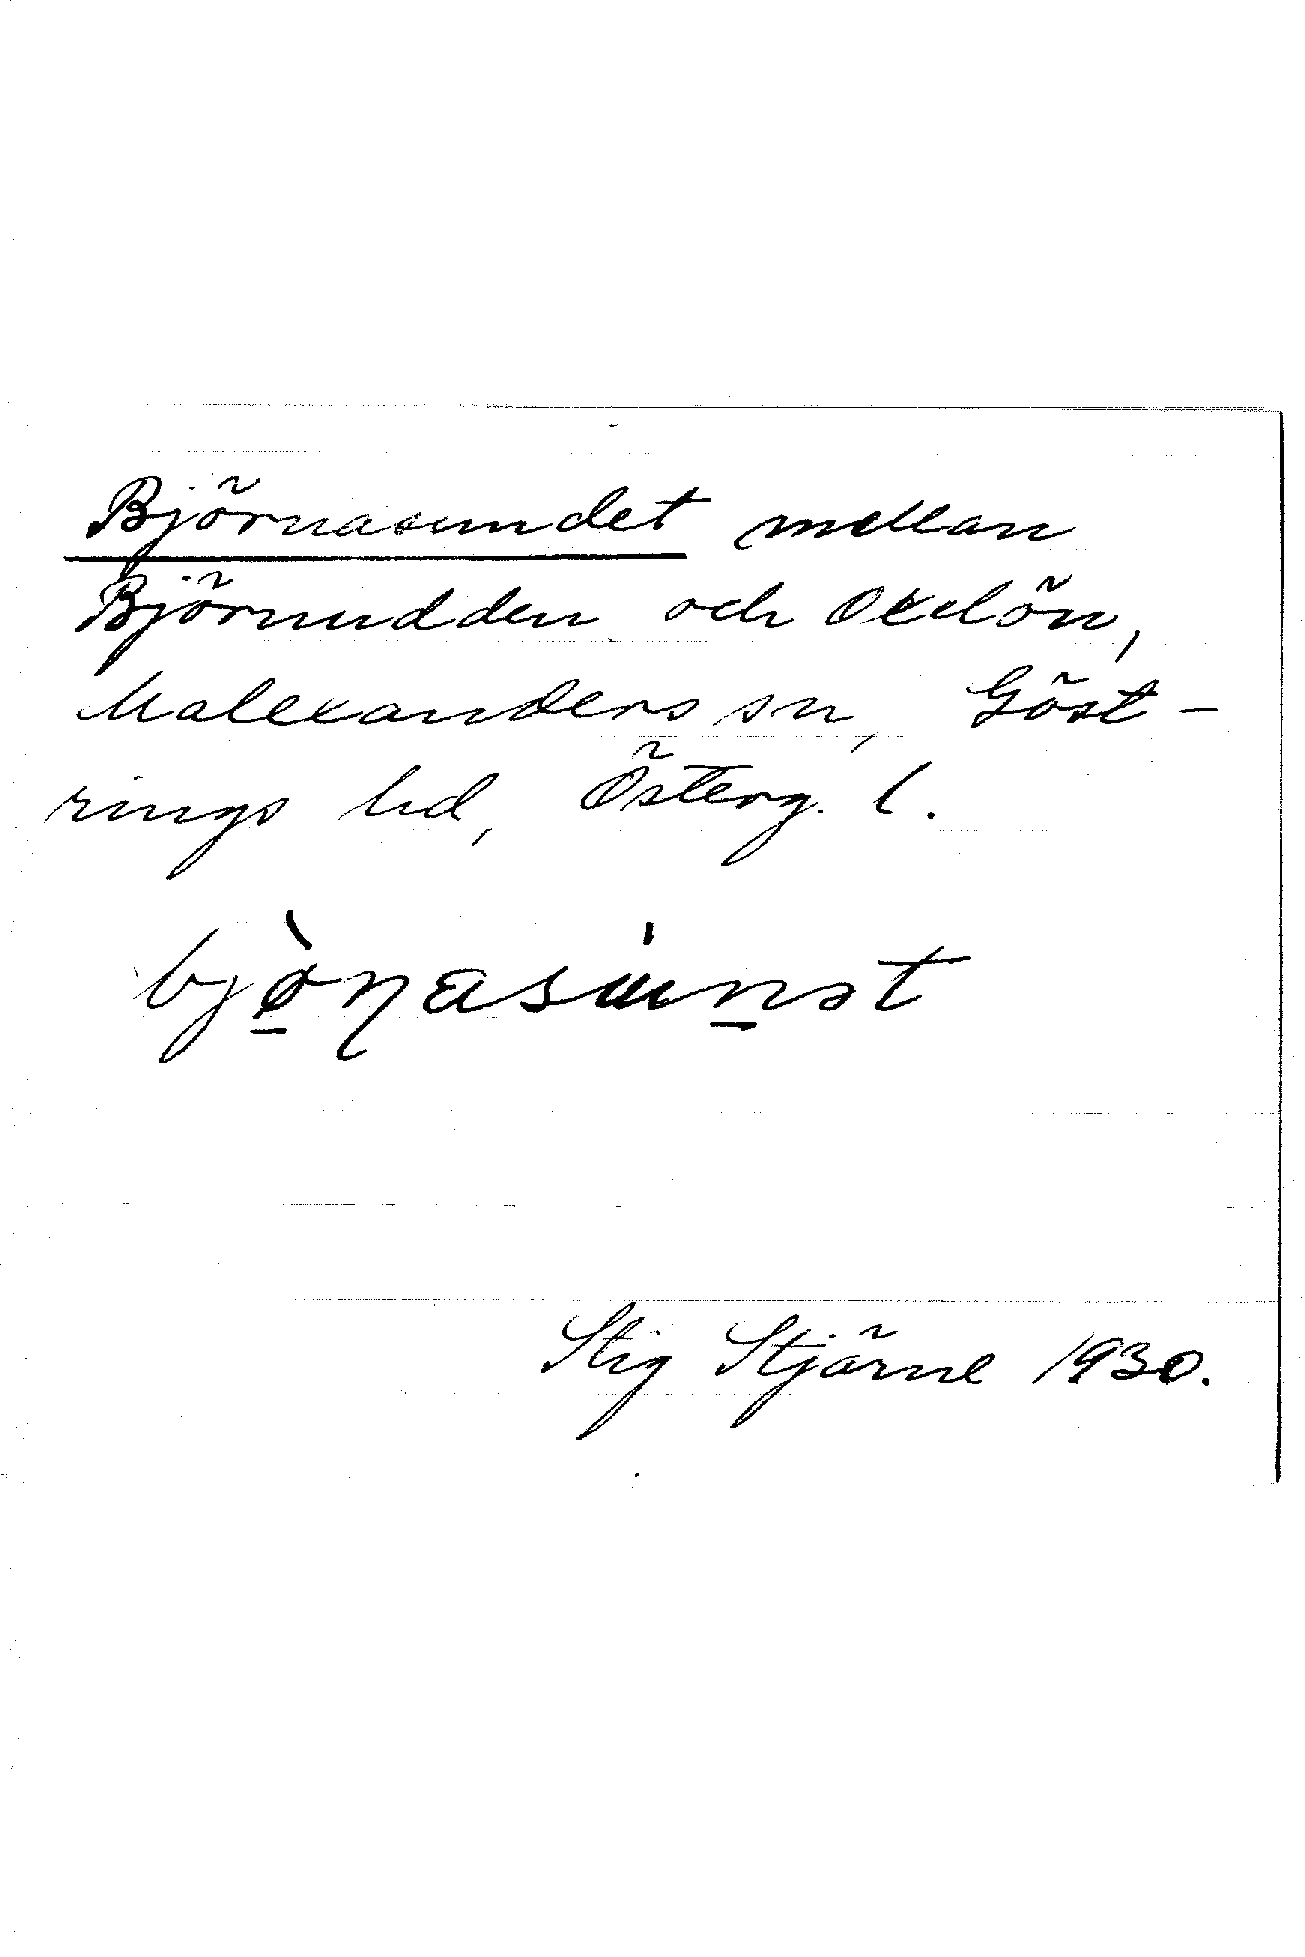 Björnasundet mellan
Björnudden och Oxelön,
Malexanders sn, Göst-
rings hd, Österg. l.
bjø̠̀ɳasu̇n̠ət
Stig Stjärne 1930.